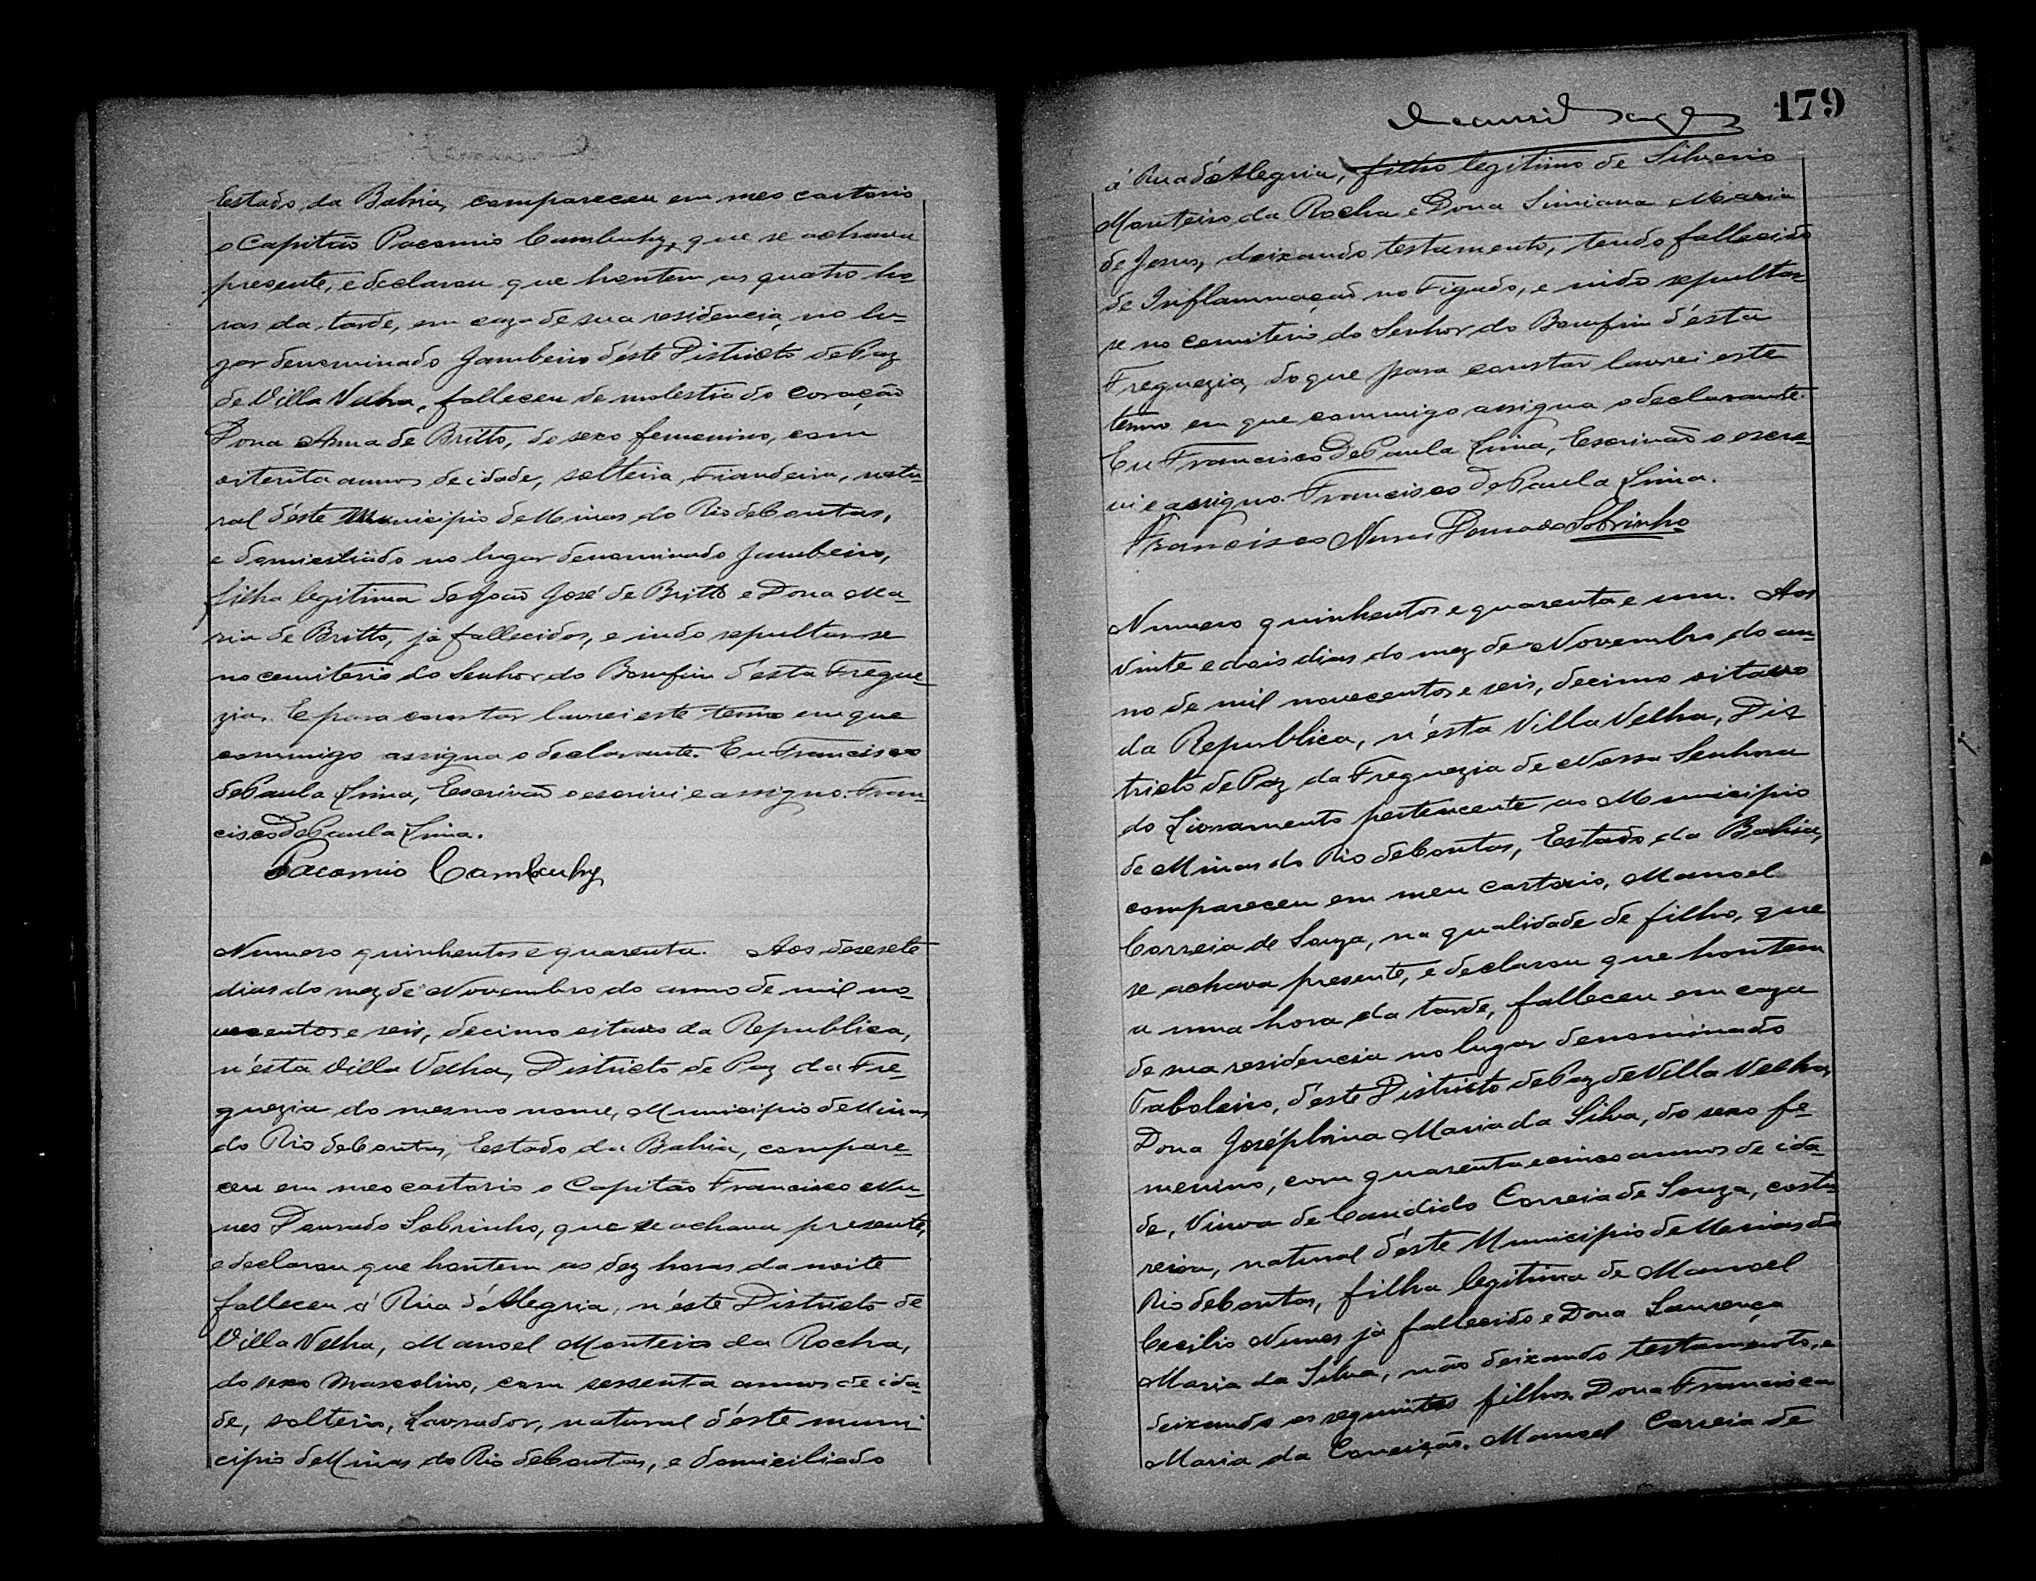 Estado da Bahia, compareceu em meo cartorio
o Capitão Pacomio Cambuhy, que se achava
presente, e declarou que hontem as quatro ho-
ras da tarde, em caza de sua residencia, no lu-
gar denominado Jambeiro d'éste Districto de Paz
de Villa Velha, falleceu de molestia do coração
Dona Anna de Britto, do sexo femenino, com
oitenta annos de idade, solteira, Fiandeira, natu-
ral d'éste Municipio de Minas do Rio de Contas,
e domiciliado no lugar denominado Jambeiro,
filha legitima de João José de Britto e Dona Ma-
ria de Britto, já fallecidos, e indo sepultar-se
no cemiterio do Senhor do Bomfim d'ésta Fregue-
zia. E para constar lavrei este termo em que
commigo assigna o declarante. Eu Francisco
de Paula Lima, Escrivão o escrivi e assigno. Fran-
cisco de Paula Lima.
Pacomio Cambuhy
Numero quinhentos e quarenta. Aos desesete
dias do mez de Novembro do anno de mil no-
vecentos e seis, decimo oitavo da Republica,
n'ésta Villa Velha, Districto de Paz da Fre-
guezia do mesmo nome, Municipio de Minas
do Rio de Contas, Estado da Bahia, compare-
ceu em meo cartorio o Capitão Francisco Nu-
nes Dourado Sobrinho, que se achava presente,
e declarou que hontem as dez horas da noite
falleceu á Rua d'Alegria, n'éste Districto de
Villa Velha, Manoel Monteiro da Rocha,
do sexo Mascolino, com sessenta annos de ida-
de, solteiro, Lavrador, natural d'éste muni-
cipio de Minas do Rio de Contas, e domiciliado
179
á Rua d'Alegria, filho legitimo de Silverio
Monteiro da Rocha e Dona Simiana Maria
de Jesus, deixando testamento, tendo fallecido
de Inflammação no Figado, e indo sepultar-
se no cemiterio do Senhor do Bomfim d'ésta
Freguezia, do que para constar lavrei este
termo em que commigo assigna o declarante.
Eu Francisco de Paula Lima, Escrivão o escre-
vi e assigno. Francisco de Paula Lima.
Francisco Nunes Dourado Sobrinho
Numero quinhentos e quarenta e um. Aos
vinte e dois dias do mez de Novembro do an-
no de mil novecentos e seis, decimo oitavo
da Republica, n'ésta Villa Velha, Dis
tricto de Paz da Freguezia de Nossa Senhora
do Livramento pertencente ao Municipio
de Minas do Rio de Contas, Estado da Bahia,
compareceu em meu cartorio, Manoel
Correia de Souza, na qualidade de filho, que
se achava presente, e declarou que hontem
a uma hora da tarde, falleceu em caza
de sua residencia no lugar denominado
Taboleiro, d'éste Districto de Paz de Villa Velha,
Dona Joséphina Maria da Silva, do sexo fe-
menino, com quarenta e cinco annos de ida-
de, Viuva de Candido Correia de Souza, costu-
reira, natural d'éste Municipio de Menias do
Rio de Contas, filha legitima de Manoel
Cecilio Nunes já fallecido e Dona Lourença
Maria da Silva, não deixando testamento, e
deixando os seguintes filhos. Dona Francisca
Maria da Conceição. Manoel Correia de